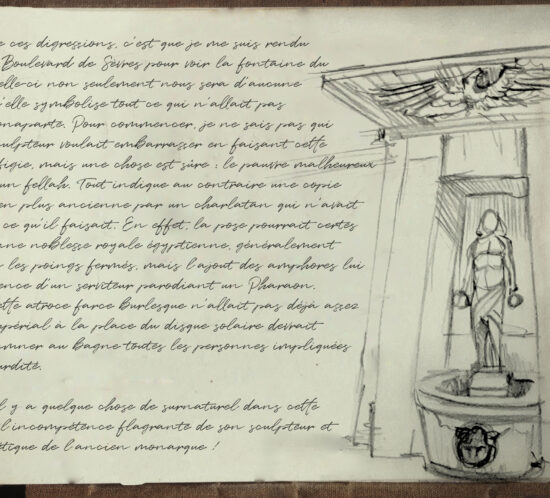 e ces digressions, c'est que je me suis rendu
Boulevard de Sèvres pour voir la fontaine du
elle-ci non seulement nous sera d'aucune
'elle symbolise tout ce qui n'allait pas
onaparte. Pour commencer, je ne sais pas qui
culpteur voulait embarrasser en faisant cette
figie, mais une chose est sûre : le pauvre malheureux
un fellah. Tout indique au contraire une copie
en plus ancienne par un charlatan qui n'avait
ce qu'il faisait. En effet, la pose pourrait certes
une noblesse royale égyptienne, généralement
les poings fermés, mais l'ajout des amphores lui
ence d'un serviteur parodiant un Pharaon.
ette atroce farce burlesque n'allait pas déjà assez
mpérial à la place du disque solaire devrait
amner au bagne toutes les personnes impliquées
urdité.
il y a quelque chose de surnaturel dans cette
l'incompétence flagrante de son sculpteur et
étique de l'ancien monarque !